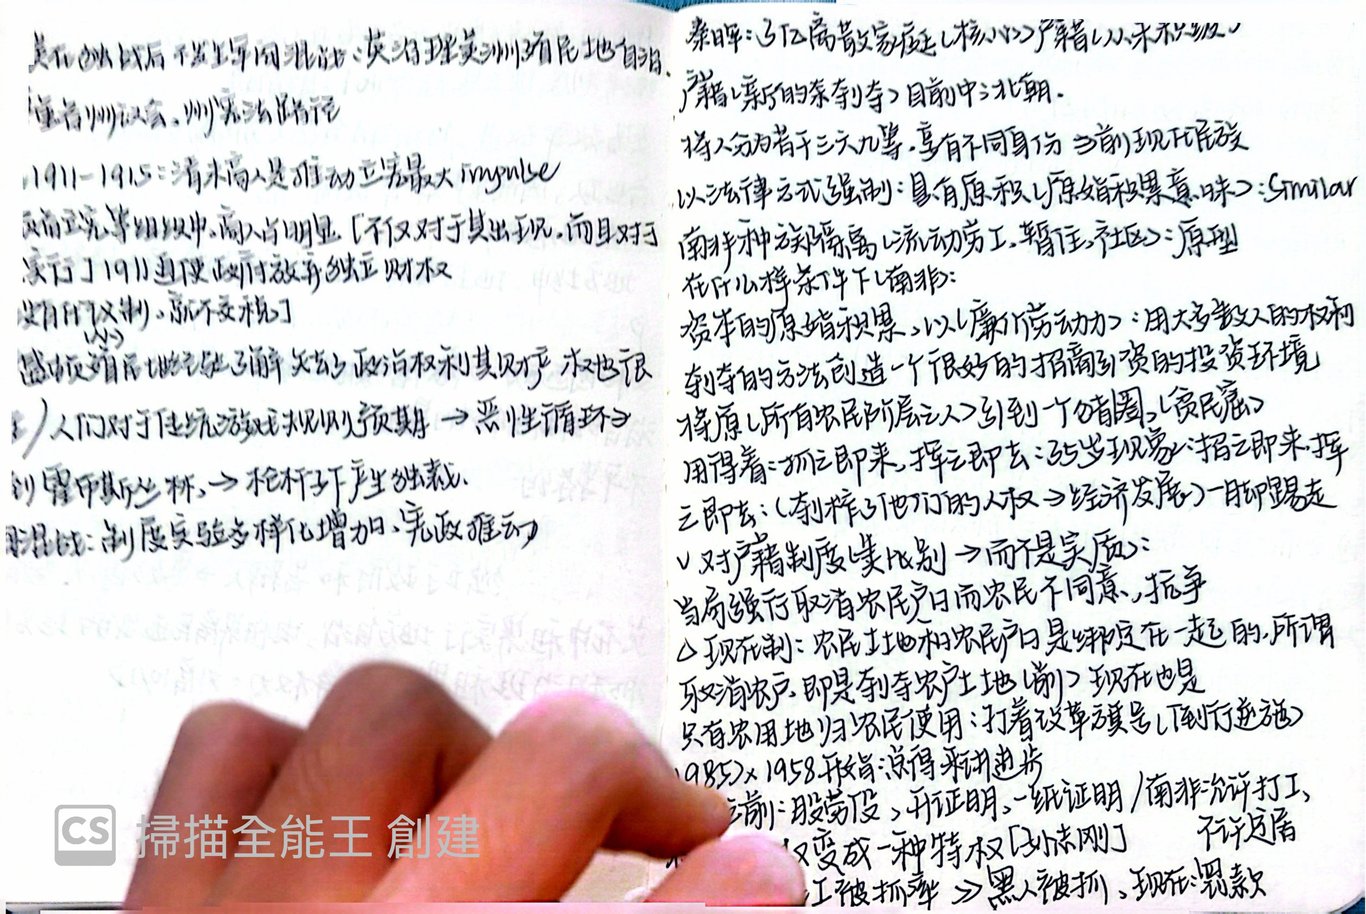 美在独战后不发生军阀混战：英治理美洲殖民地自治
重省州议会，州宪法路径
1911-1915：清末商人是推动立宪最大impulse
立宪等组织中，商人占明显[不仅对于其出现，而且对于
实行]1911 迫使政府放弃独立财权
没有代议制，就不交税]
殖民地经验了解失去了政治权利其财产权也很
人们对于传统游戏规则预期→恶性循环→
到霍布斯丛林，→枪杆子下产生独裁.
混战：制度实验多样化增加，宪政推动
秦晖：3亿离散家庭(核心)户籍
户籍(新的剥夺)目前中：北朝.
将人分为若干三六九等，享有不同身份 当前现代民族
以法律方式强制：具有原积(原始积累意味)：similar
南非种族隔离(流动劳工，暂住，社区)：原型
在什么样条件下(南非)：
资本的原始积累，以(廉价劳动力)：用大多数人的权利
剥夺的方法创造一个很好的招商引资的投资环境
将原(所有农民阶层之人)引到一个猪圈，(贫民窟)
用得着：抓之即来，挥之即去：35岁现象：招之即来，挥
之即去：(剥掉了他们的人权→经济发展)一脚踢走
√对户籍制度(类比别→而不是实质)：
当局强行取消农民户口而农民不同意，抗争
△现在制：农民土地和农民户口是绑定在一起的，所谓
取消农户，即是剥夺农户土地(前)现在也是
只有农用地归农民使用：打着改革旗号(倒行逆施)
1985)×1958开始：总得来讲进步
之前：服劳役，开证明，一纸证明/南非允许打工，
不许定居
权变成一种特权[孙志刚]
工被抓率→黑人被抓，现在：罚款
掃描全能王 創建